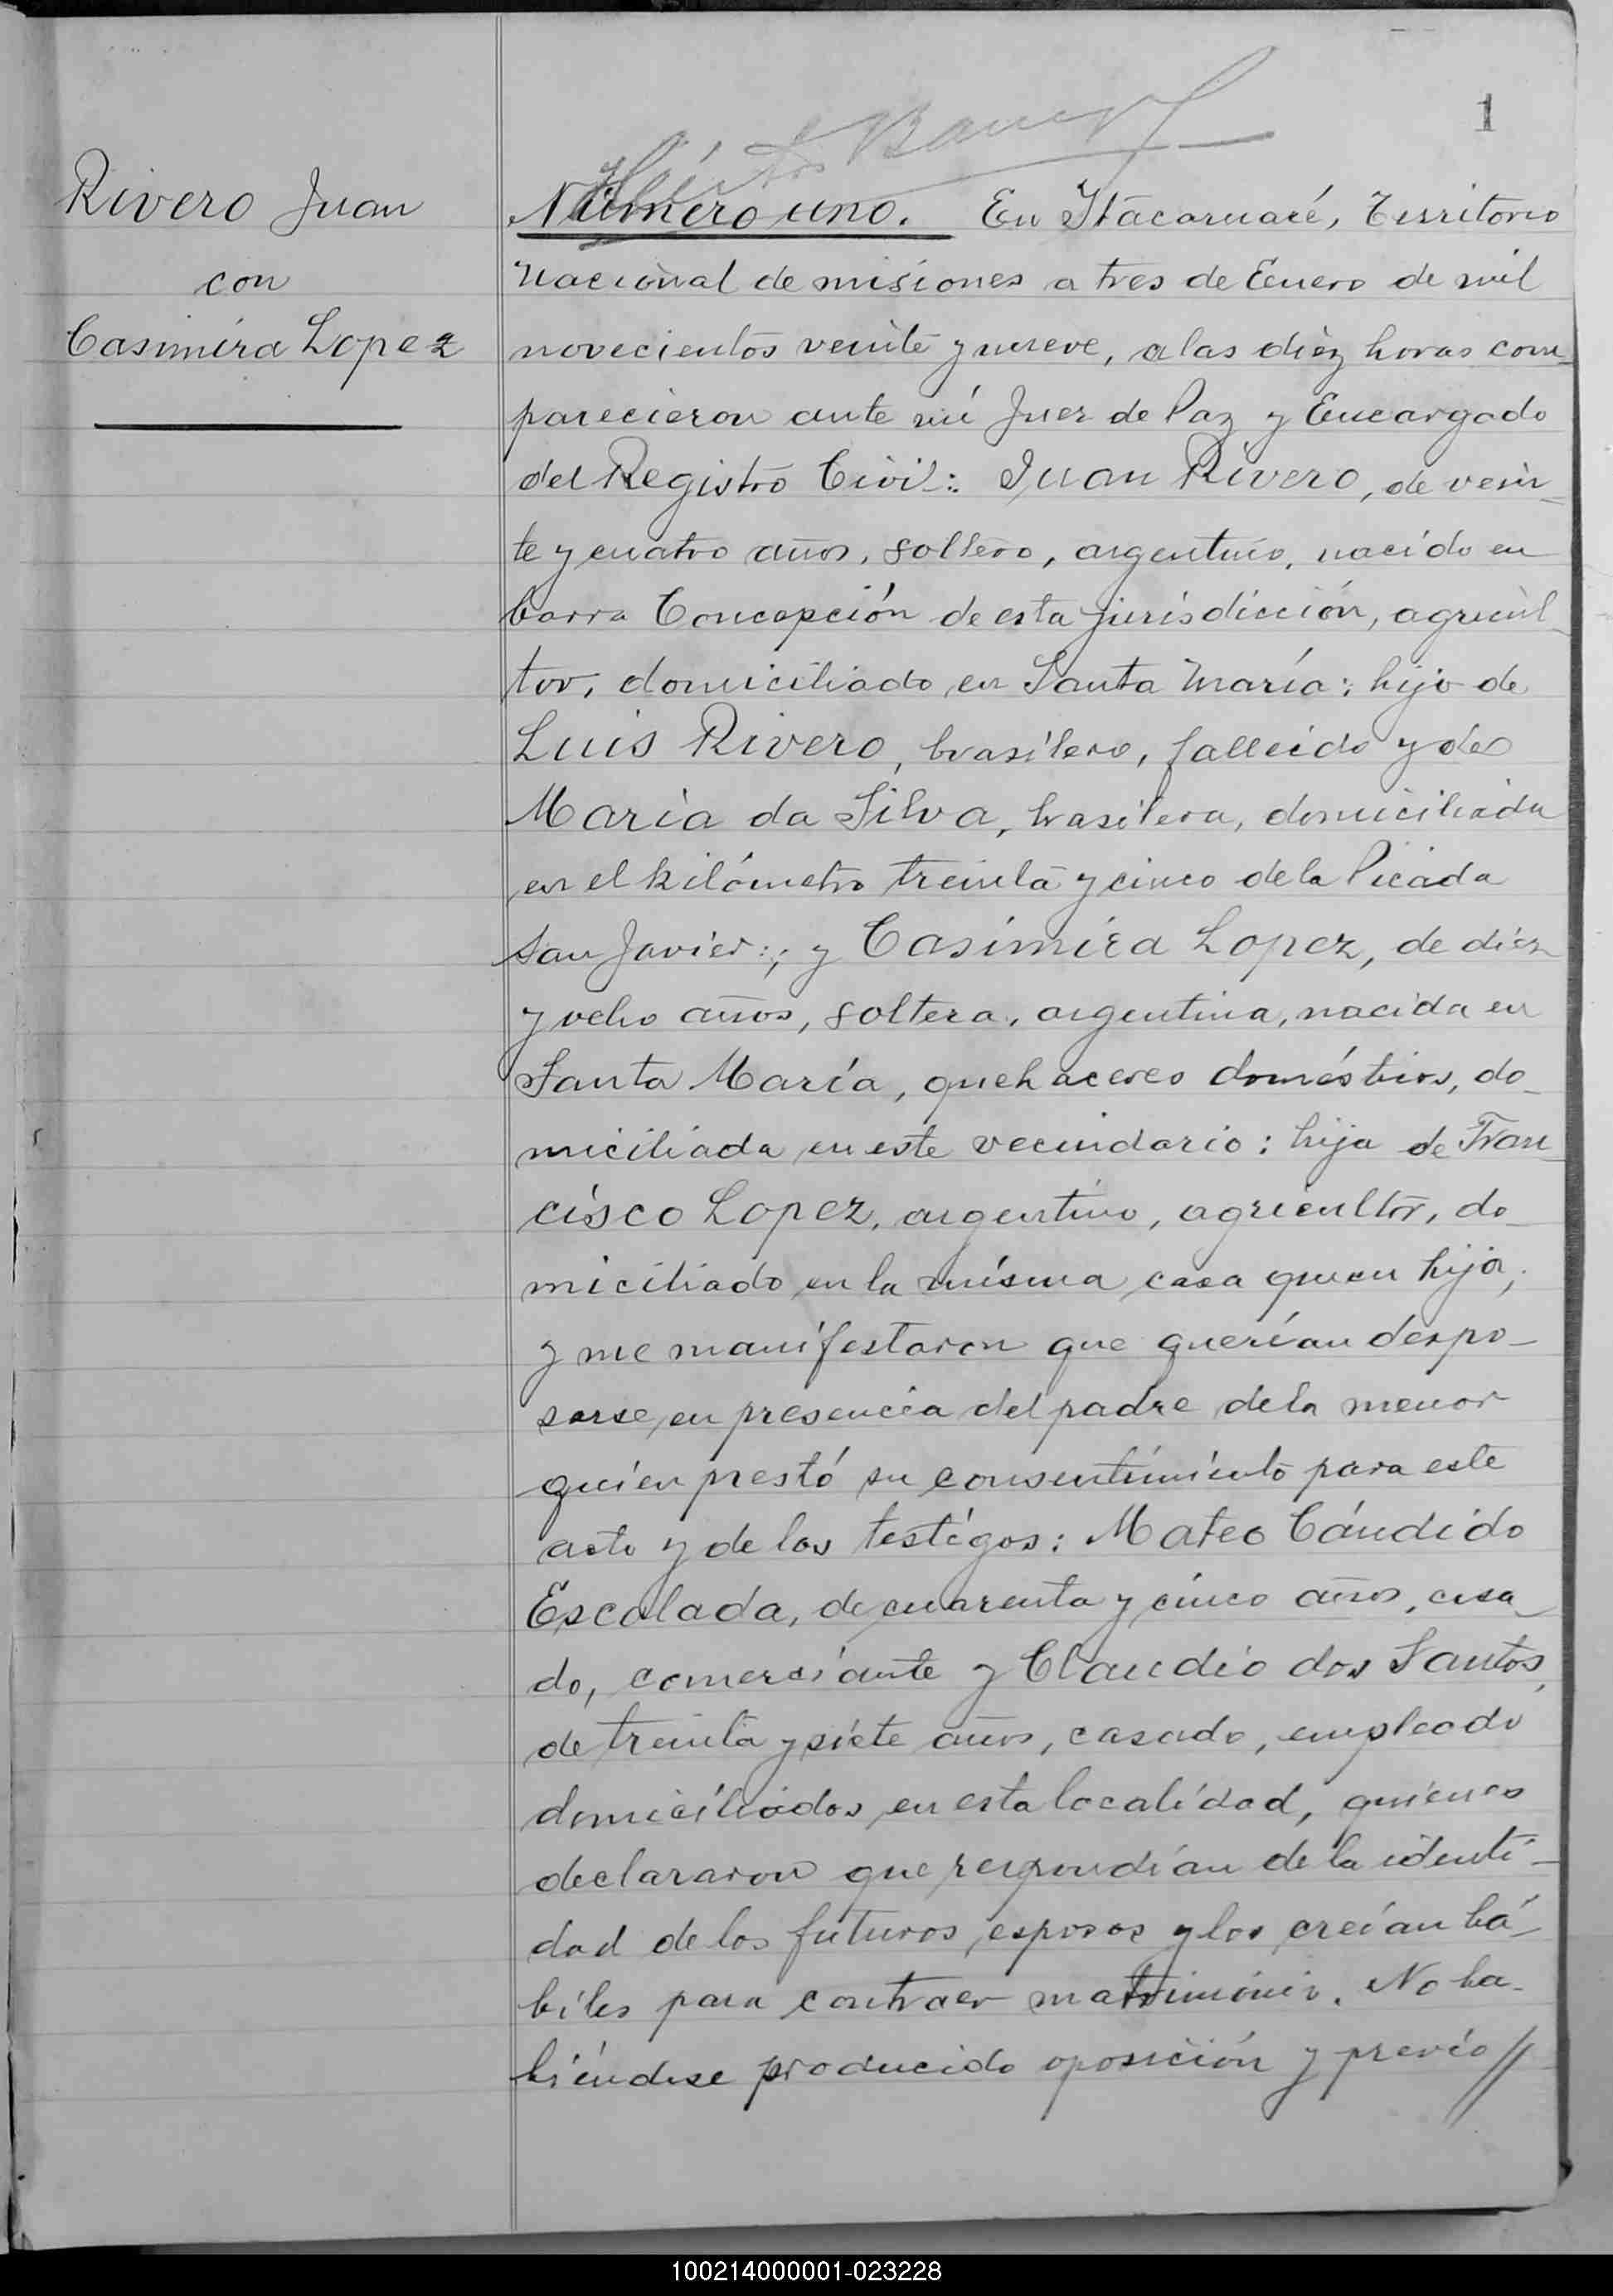 1
Rivero Juan
con
Casimira Lopez
Número uno. En Itacaruaré, Territorio
Nacional de misiones a tres de Enero de mil
novecientos veinte y nueve, a las diez horas com-
parecieron ante mí Juez de Paz y Encargado
del Registro Civil: Juan Rivero, de vein-
te y cuatro años, soltero, argentino, nacido en
barra Concepción de esta jurisdicción, agricul-
tor, domiciliado en Santa María: hijo de
Luis Rivero, brasilero, fallecido y de
María da Silva, brasilera, domiciliada
en el kilómetro treinta y cinco de la Picada
San Javier:; y Casimira Lopez, de diez
y ocho años, soltera, argentina, nacida en
Santa María, quehaceres domésticos, do-
miciliada en este vecindario: hija de Fran-
cisco Lopez, argentino, agricultor, do-
miciliado en la misma casa que su hija,
y me manifestaron que querían despo-
sarse, en presencia del padre de la menor
quien prestó su consentimiento para este
acto y de los testigos: Mateo Cándido
Escalada, de cuarenta y cinco años, casa-
do, comerciante y Claudio dos Santos,
de treinta y siete años, casado, empleado
domiciliados en esta localidad, quienes
declararon que respondían de la identi-
dad de los futuros esposos y los creían há-
biles para contraer matrimonio. No ha-
biéndose producido oposición y previo //
100214000001-023228